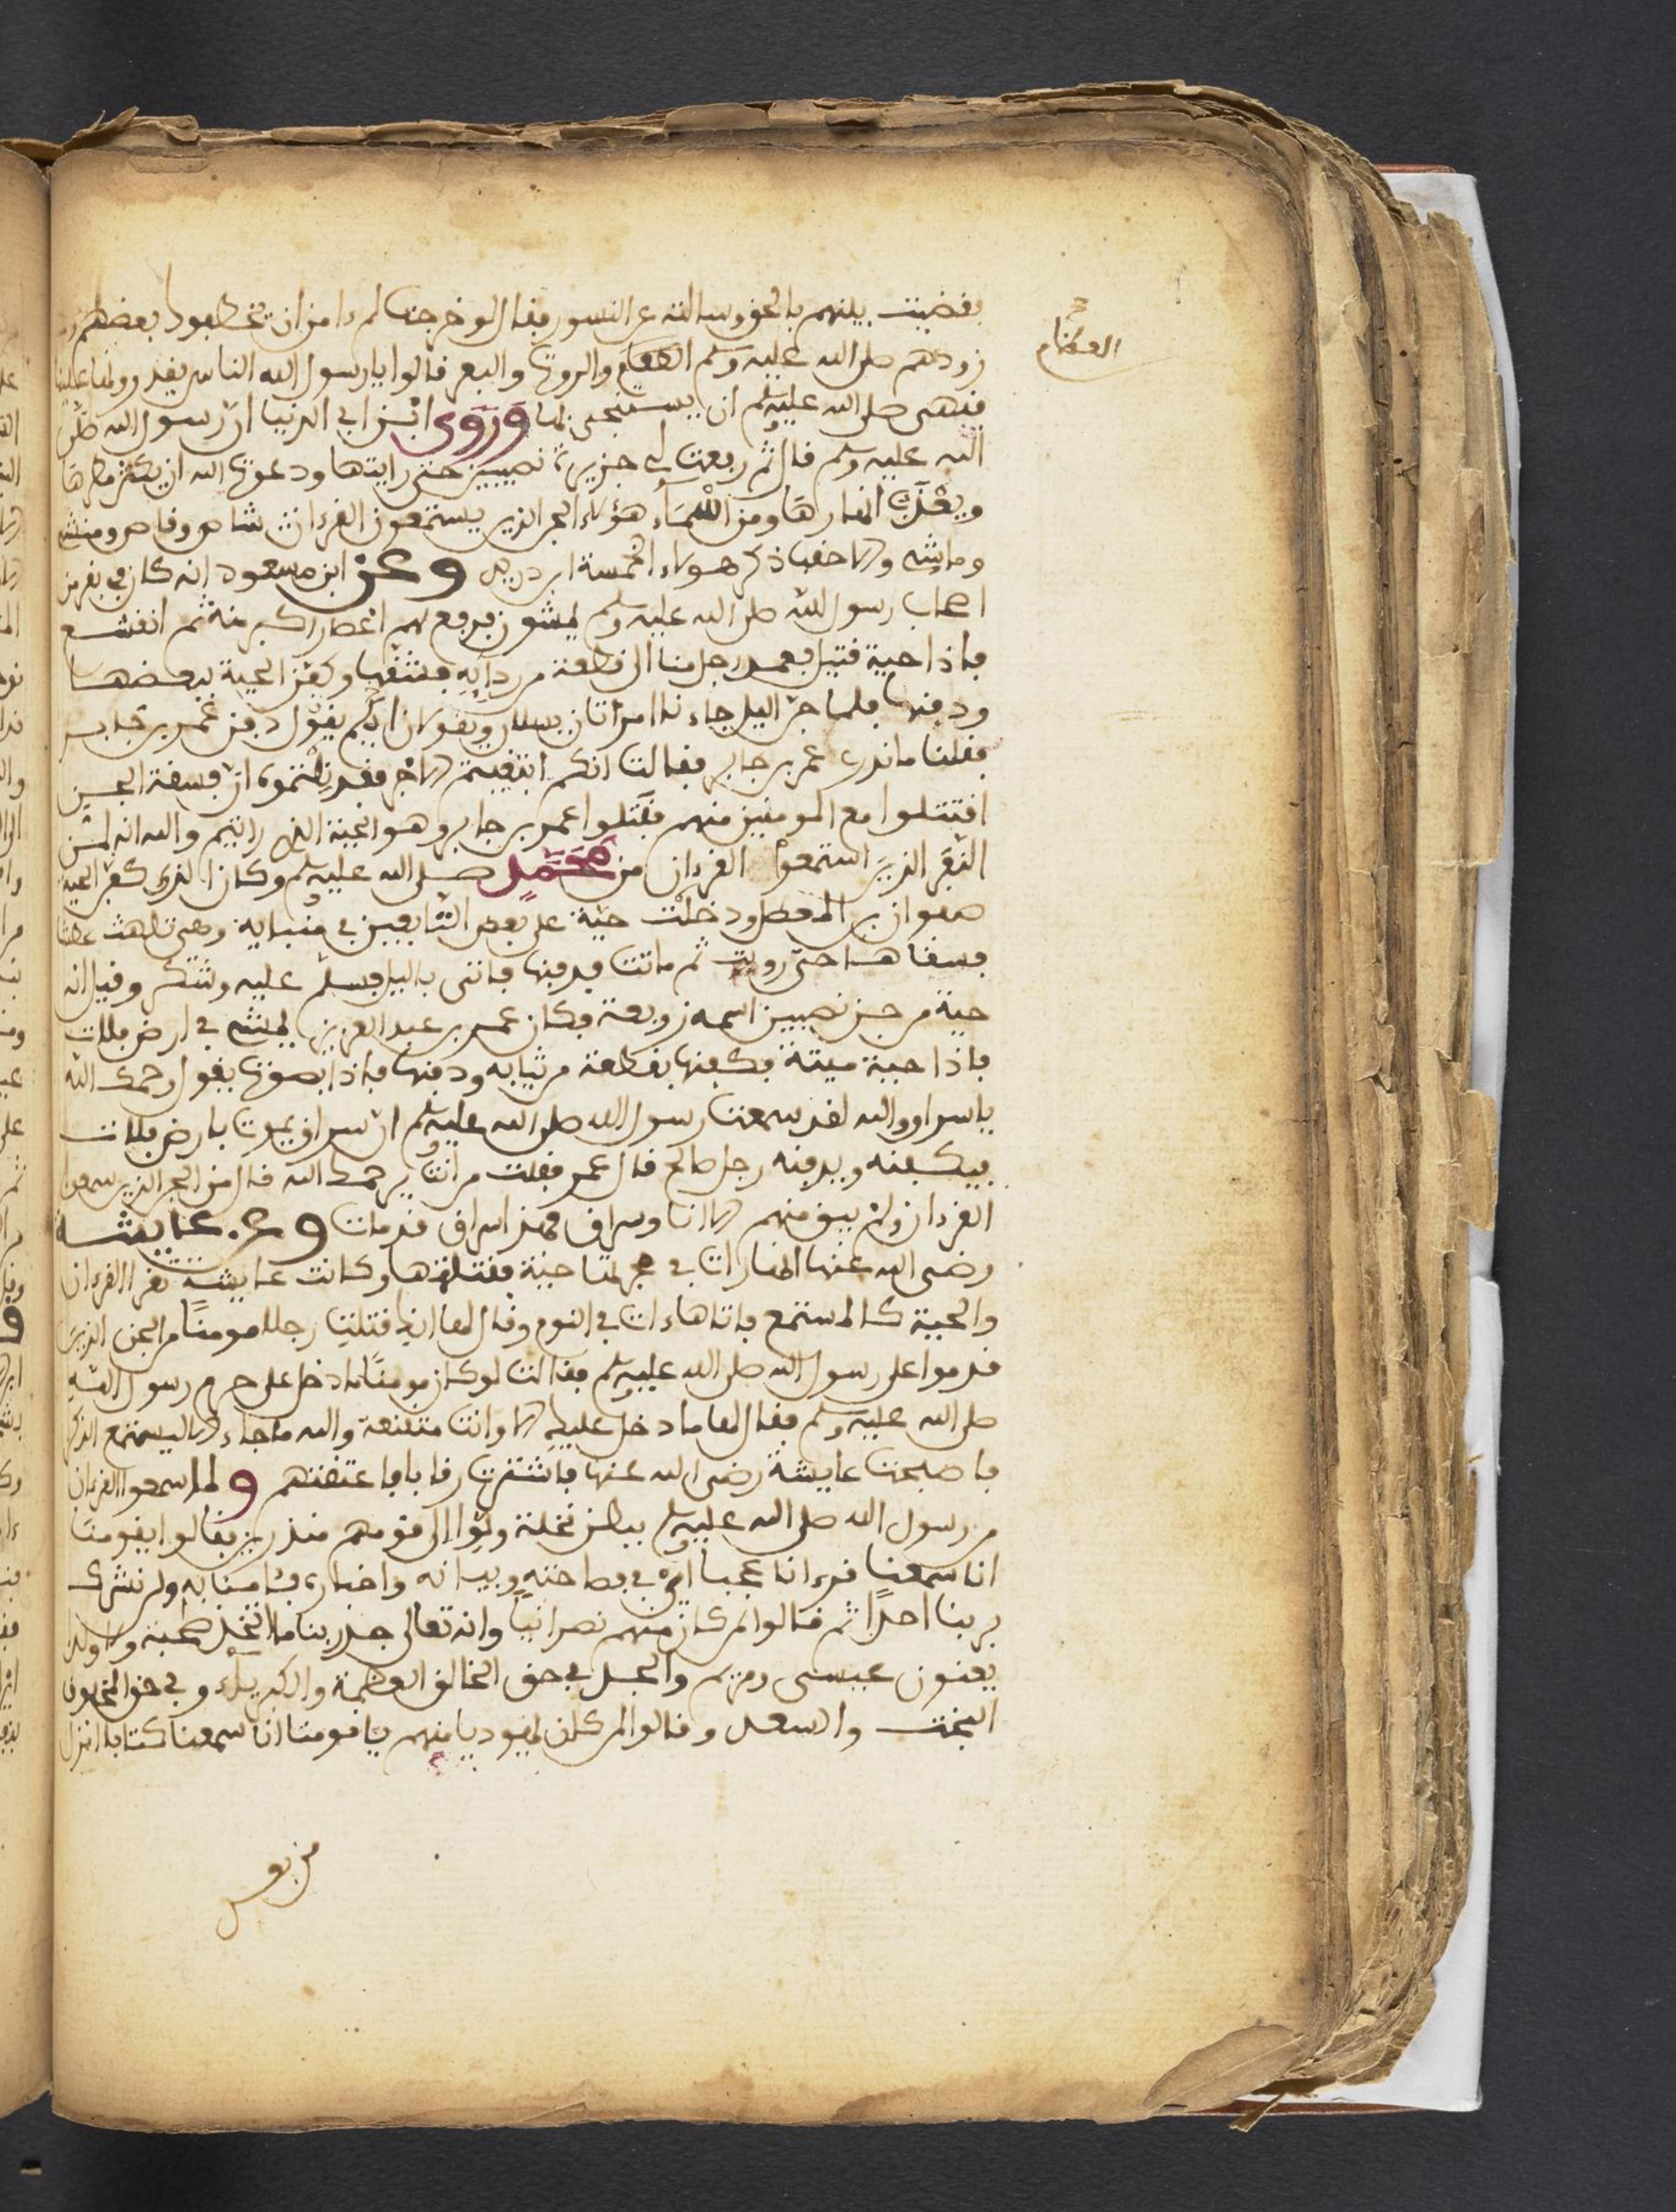 فقضيت بينهم بالحق وسالته عن النسور فقال لو خرجت لم ءامن ان تخطفك بعضهم
العظام
زودهم صلى الله عليه وسلم العظام والروث والبعر قالوا يا رسول الله الناس يقذرونها علينا
فنهى صلى الله عليه وسلم ان يستنجى بها وروى ابن ابي الدنيا ان رسول الله صلى
الله عليه وسلم قال ثم رفعت لي جزيرة نصيبين حتى رايتها ودعوت الله ان يكثر مطرها
ويعذب انهارها ومن اسماء هؤلاء الجن الذين يستمعون القرءان شاصر وناصر ومنشى
وماشى والاحقب ذكر هؤلاء الخمسة ابن دريد وعن ابن مسعود انه كان في نفر من
اصحاب رسول الله صلى الله عليه وسلم يمشون فرفع لهم اعصار اكبر منه ثم انقشع
فاذا حية قتيل فعمد رجل منا الى قطعة من ردايه فشقها وكفن الحية ببعضها
ودفنها فلما جن اليل جاءنا امراتان يسالان وتقولان ايكم يقول دفن عمر بن جابر
فقلنا ما ندرى عمر بن جابر فقالتا انكم ان ابتغيتم الاجر فقد نلتموه ان فسقة الجن
اقتتلوا مع المومنين منهم فقتلوا عمر بن جابر وهو الحية التى رايتم والله انه لمن
النفر الذين استمعوا القرءان من محمد صلى الله عليه وسلم وكان الذى كفن الحية
صفوان بن المعطل ودخلت حية على بعض التابعين في خبايه وهى تلهث عطشا
فسقاها حتى رويت ثم ماتت فدفنها فاتى باليل فسلم عليه وشكر وقيل انه
حية من جن نصيبين اسمه زوبعة وكان عمر بن عبد العزيز يمشى في ارض فلات
فاذا حية ميتة فكفنها بقطعة من ثيابه ودفنها فاذا بصوت يقول رحمك الله
يا سراو والله لقد سمعت رسول الله صلى الله عليه وسلم ان سراق يموت بارض فلات
فيكفنه ويدفنه رجل صالح قال عمر فقلت من انت يرحمك الله قال من الجن الذين سمعوا
القرءان ولم يبق منهم الا انا وسراق فهذا سراق قد مات وعن عايشة
رضى الله عنها انها رات في حجرتها حية فقتلتها وكانت عايشة تقرا القرءان
والحية كالمستمع فاتاها ءات في النوم وقال لها انك قتلت رجلا مومنا من الجن الذين
قدموا على رسول الله صلى الله عليه وسلم فقالت لو كان مومنا ما دخل على حرم رسول الله
صلى الله عليه وسلم فقال لها ما دخل عليك الا وانت متقنعة والله ما جاء الا ليستمع الذكر
فاصبحت عايشة رضى الله عنها فاشترت رقابا فاعتقتهم ولما سمعوا القرءان
من رسول الله صلى الله عليه وسلم ببطن نخلة ولوا الى قومهم منذرين فقالوا يقومنا
انا سمعنا قرءانا عجبا اى في فصاحته وبيانه واخباره فئامنا به ولن نشرك
بربنا احدا ثم قالوا من كان منهم نصرانيا وانه تعالى جد ربنا ما اتخذ صحبة ولا ولدا
يعنون عيسى ومريم والجد في حق الخالق العظمة والكبرياء وفي حق المخلوق
البخت والسعد وقالوا من كان يهوديا منهم يا قومنا انا سمعنا كتابا انزل
من بعد